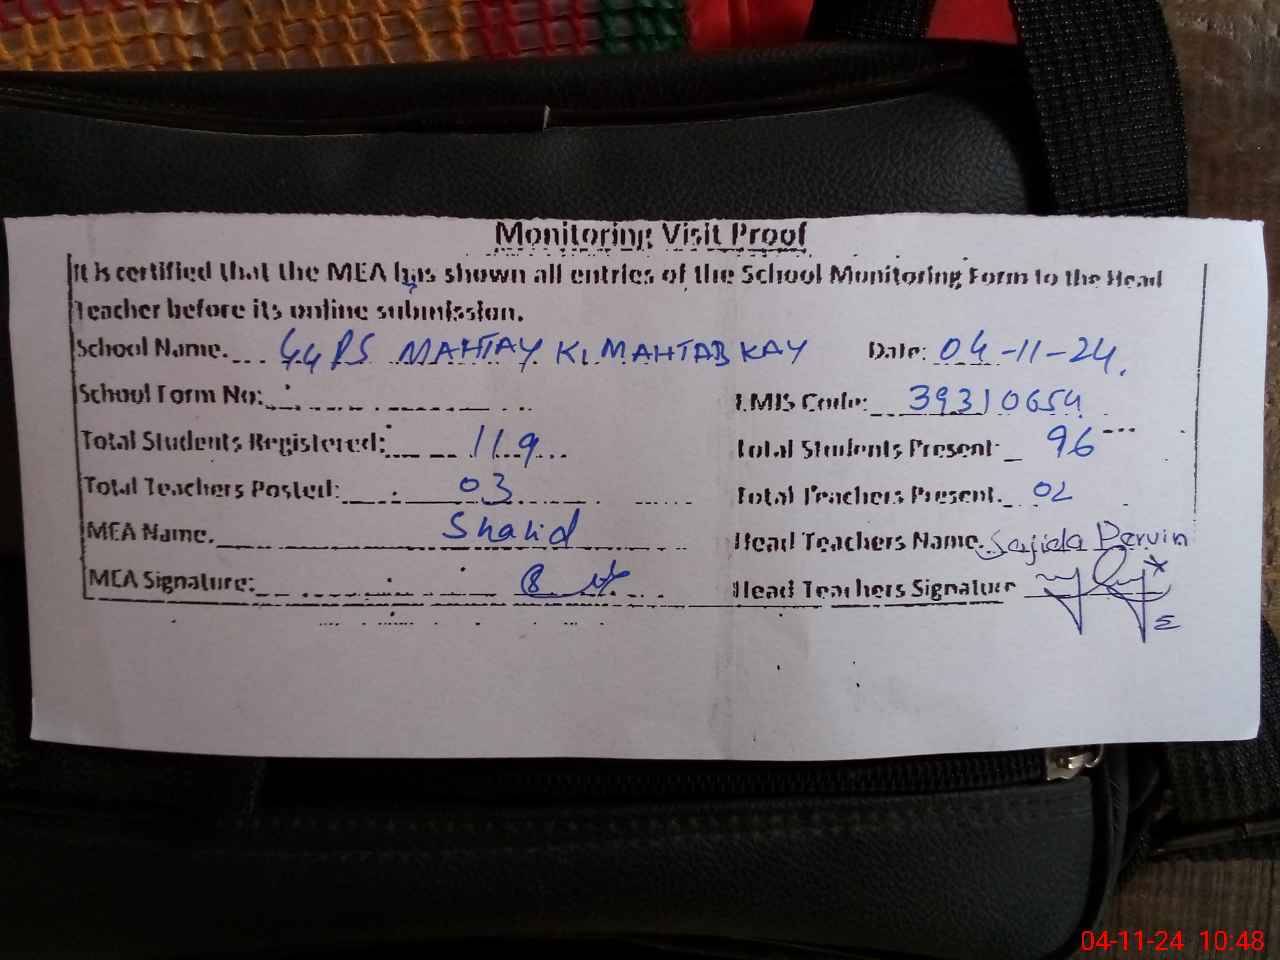 Monitoring Visit Proof
It is certified that the MEA has shown all entries of the School Monitoring Form to the Head
Teacher before its online submission.
School Name. GGPS MAHTAY KI MAHTAB KAY Date: 04-11-24.
School Form No:
EMIS Code: 39310654
Total Students Registered: 119 Total Students Present 96
Total Teachers Posted: 03 Total Teachers Present. 02
MEA Name. Shahid Head Teachers Name. Sajida Pervin
MEA Signature: Head Teachers Signature
04-11-24 10:48